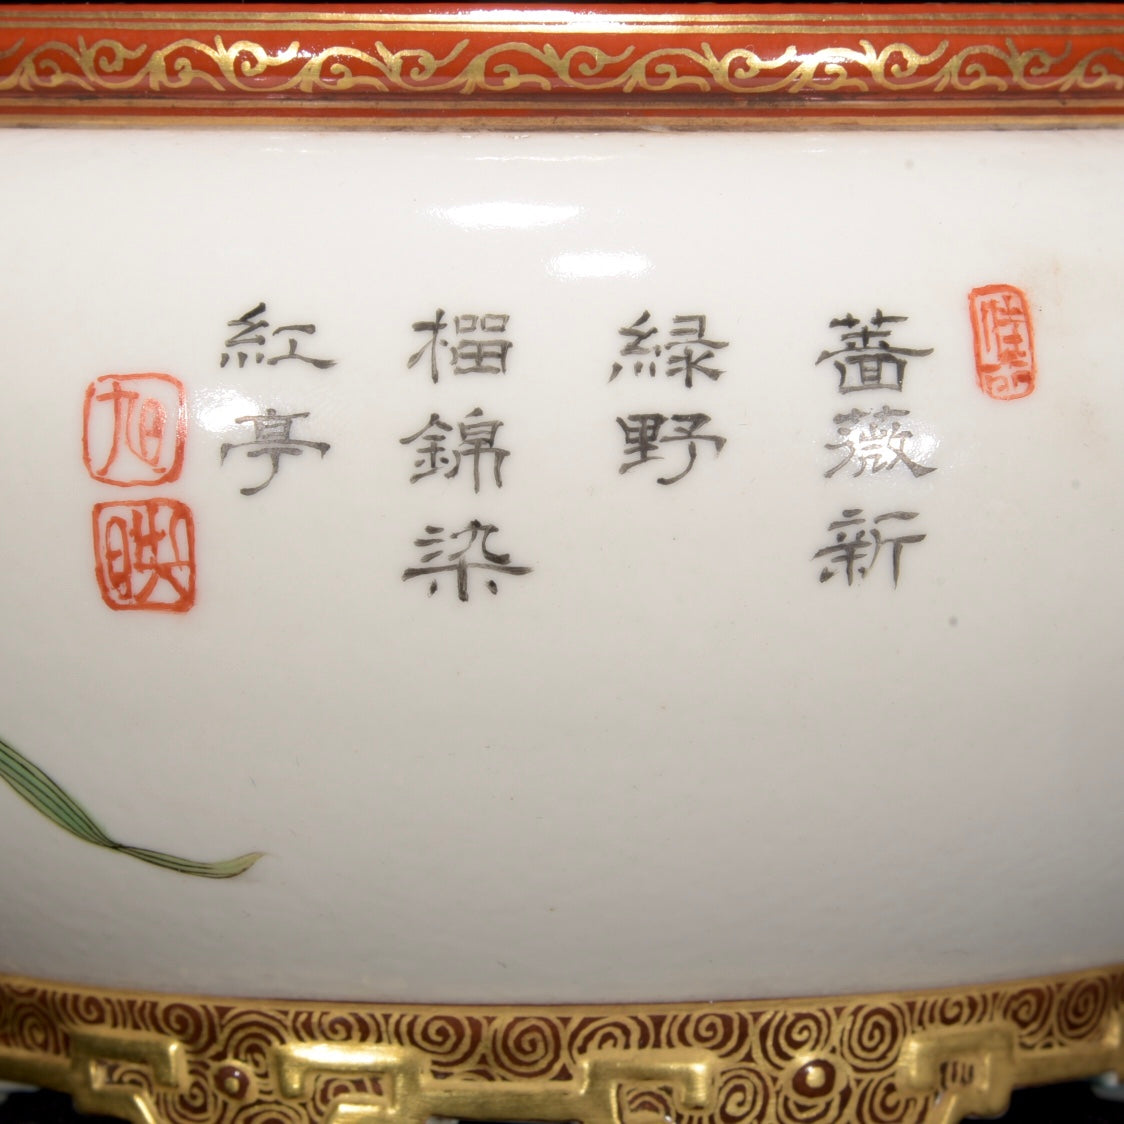 佳
薔薇新
緑野
榴錦染
紅亭
旭
映